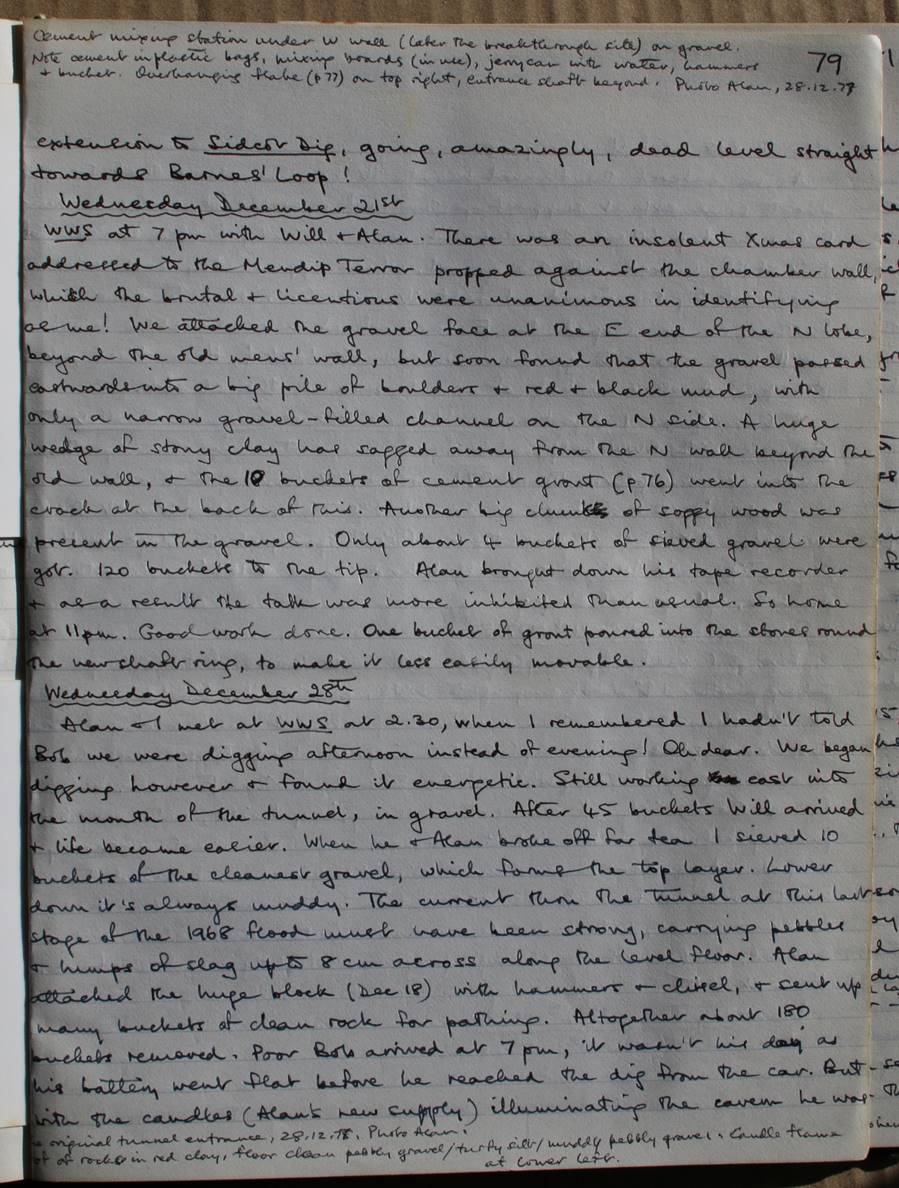 Cement mixing station under W wall (later the breakthrough site) on gravel.
Note cement in plastic bags, mixing boards (in use), jerrycan with water, hammers
+ bucket. Overhanging flake (p77) on top right, entrance shaft beyond. Photo Alan, 28.12.77
79
extension to Sidcot Dig, going, amazingly, dead level straight
towards Barnes' Loop!
Wednesday December 21st
WWS at 7 pm with Will + Alan. There was an insolent Xmas card
addressed to the Mendip Terror propped against the chamber wall,
which the brutal + licentious were unanimous in identifying
as me! We attacked the gravel face at the E end of the N lobe,
beyond the old mens' wall, but soon found that the gravel passed
eastwards into a big pile of boulders + red + black mud, with
only a narrow gravel-filled channel on the N side. A huge
wedge of stony clay has sagged away from the N wall beyond the
old wall, + the 10 buckets of cement grout (p76) went into the
crack at the back of this. Another big chunk of soggy wood was
present in the gravel. Only about 4 buckets of sieved gravel were
got. 120 buckets to the tip. Alan brought down his tape recorder
+ as a result the talk was more inhibited than usual. So home
at 11pm. Good work done. One bucket of grout poured into the stones round
the new shaft ring, to make it less easily movable.
Wednesday December 28th
Alan + I met at WWS at 2.30, when I remembered I hadn't told
Bob we were digging afternoon instead of evening! Oh dear. We began
digging however + found it energetic. Still working east into
the mouth of the tunnel, in gravel. After 45 buckets Will arrived
+ life became easier. When he + Alan broke off for tea I sieved 10
buckets of the cleanest gravel, which forms the top layer. Lower
down it's always muddy. The current thro the tunnel at this last
stage of the 1968 flood must have been strong, carrying pebbles
+ lumps of slag up to 8 cm across along the level floor. Alan
attacked the huge block (Dec 18) with hammers + chisel, + sent up
many buckets of clean rock for pathing. Altogether about 180
buckets removed. Poor Bob arrived at 7 pm, it wasn't his day as
his battery went flat before he reached the dig from the car. But
with the candles (Alan's new supply) illuminating the cavern he was
original tunnel entrance, 28.12.78. Photo Alan.
of rocks in red clay, floor clean pebbly gravel/turfy silt/muddy pebbly gravel. Candle flame
at lower left.